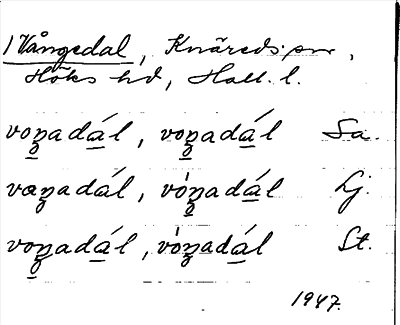 1 Vångedal, Knäreds sn,
Höks hd, Hall. l.
voŋadál, voŋadál Sa.
vœŋadál, vóŋadál Lj.
voŋadál, vòŋadál St.
1947.